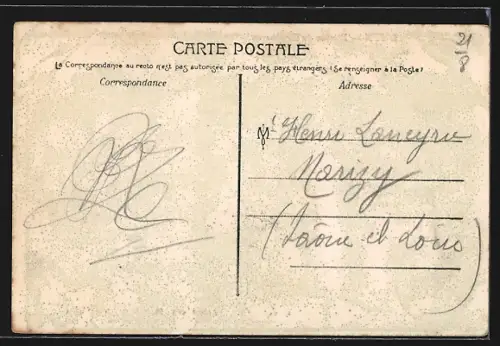 21
8
CARTE POSTALE
La Correspondance au recto n'est pas autorisée par tous les pays étrangers (Se renseigner à la Poste)
Correspondance
Adresse
Mr Henri Laneyrie
Marizy
(Saône et Loire)